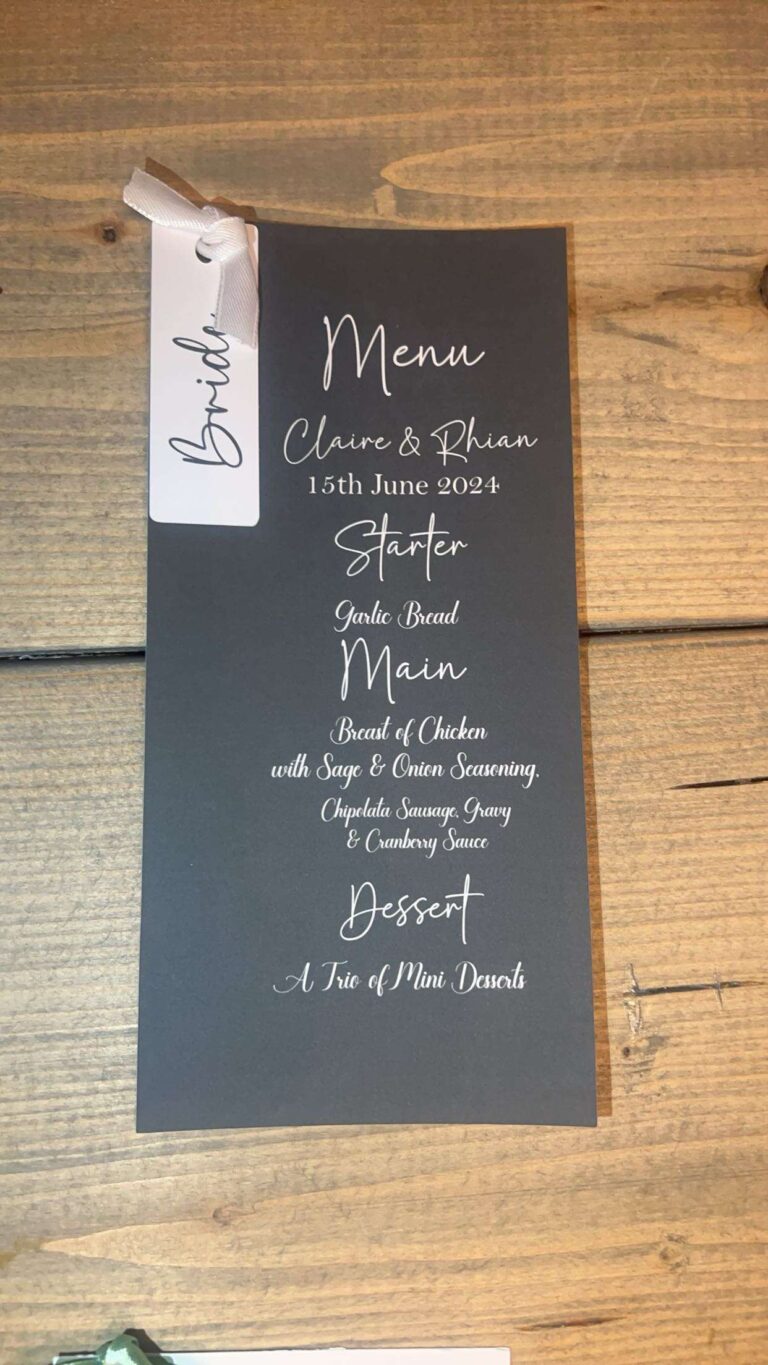 Bride
Menu
Claire & Rhian
15th June 2024
Starter
Garlic Bread
Main
Breast of Chicken
with Sage & Onion Seasoning,
Chipolata Sausage, Gravy
& Cranberry Sauce
Dessert
A Trio of Mini Desserts